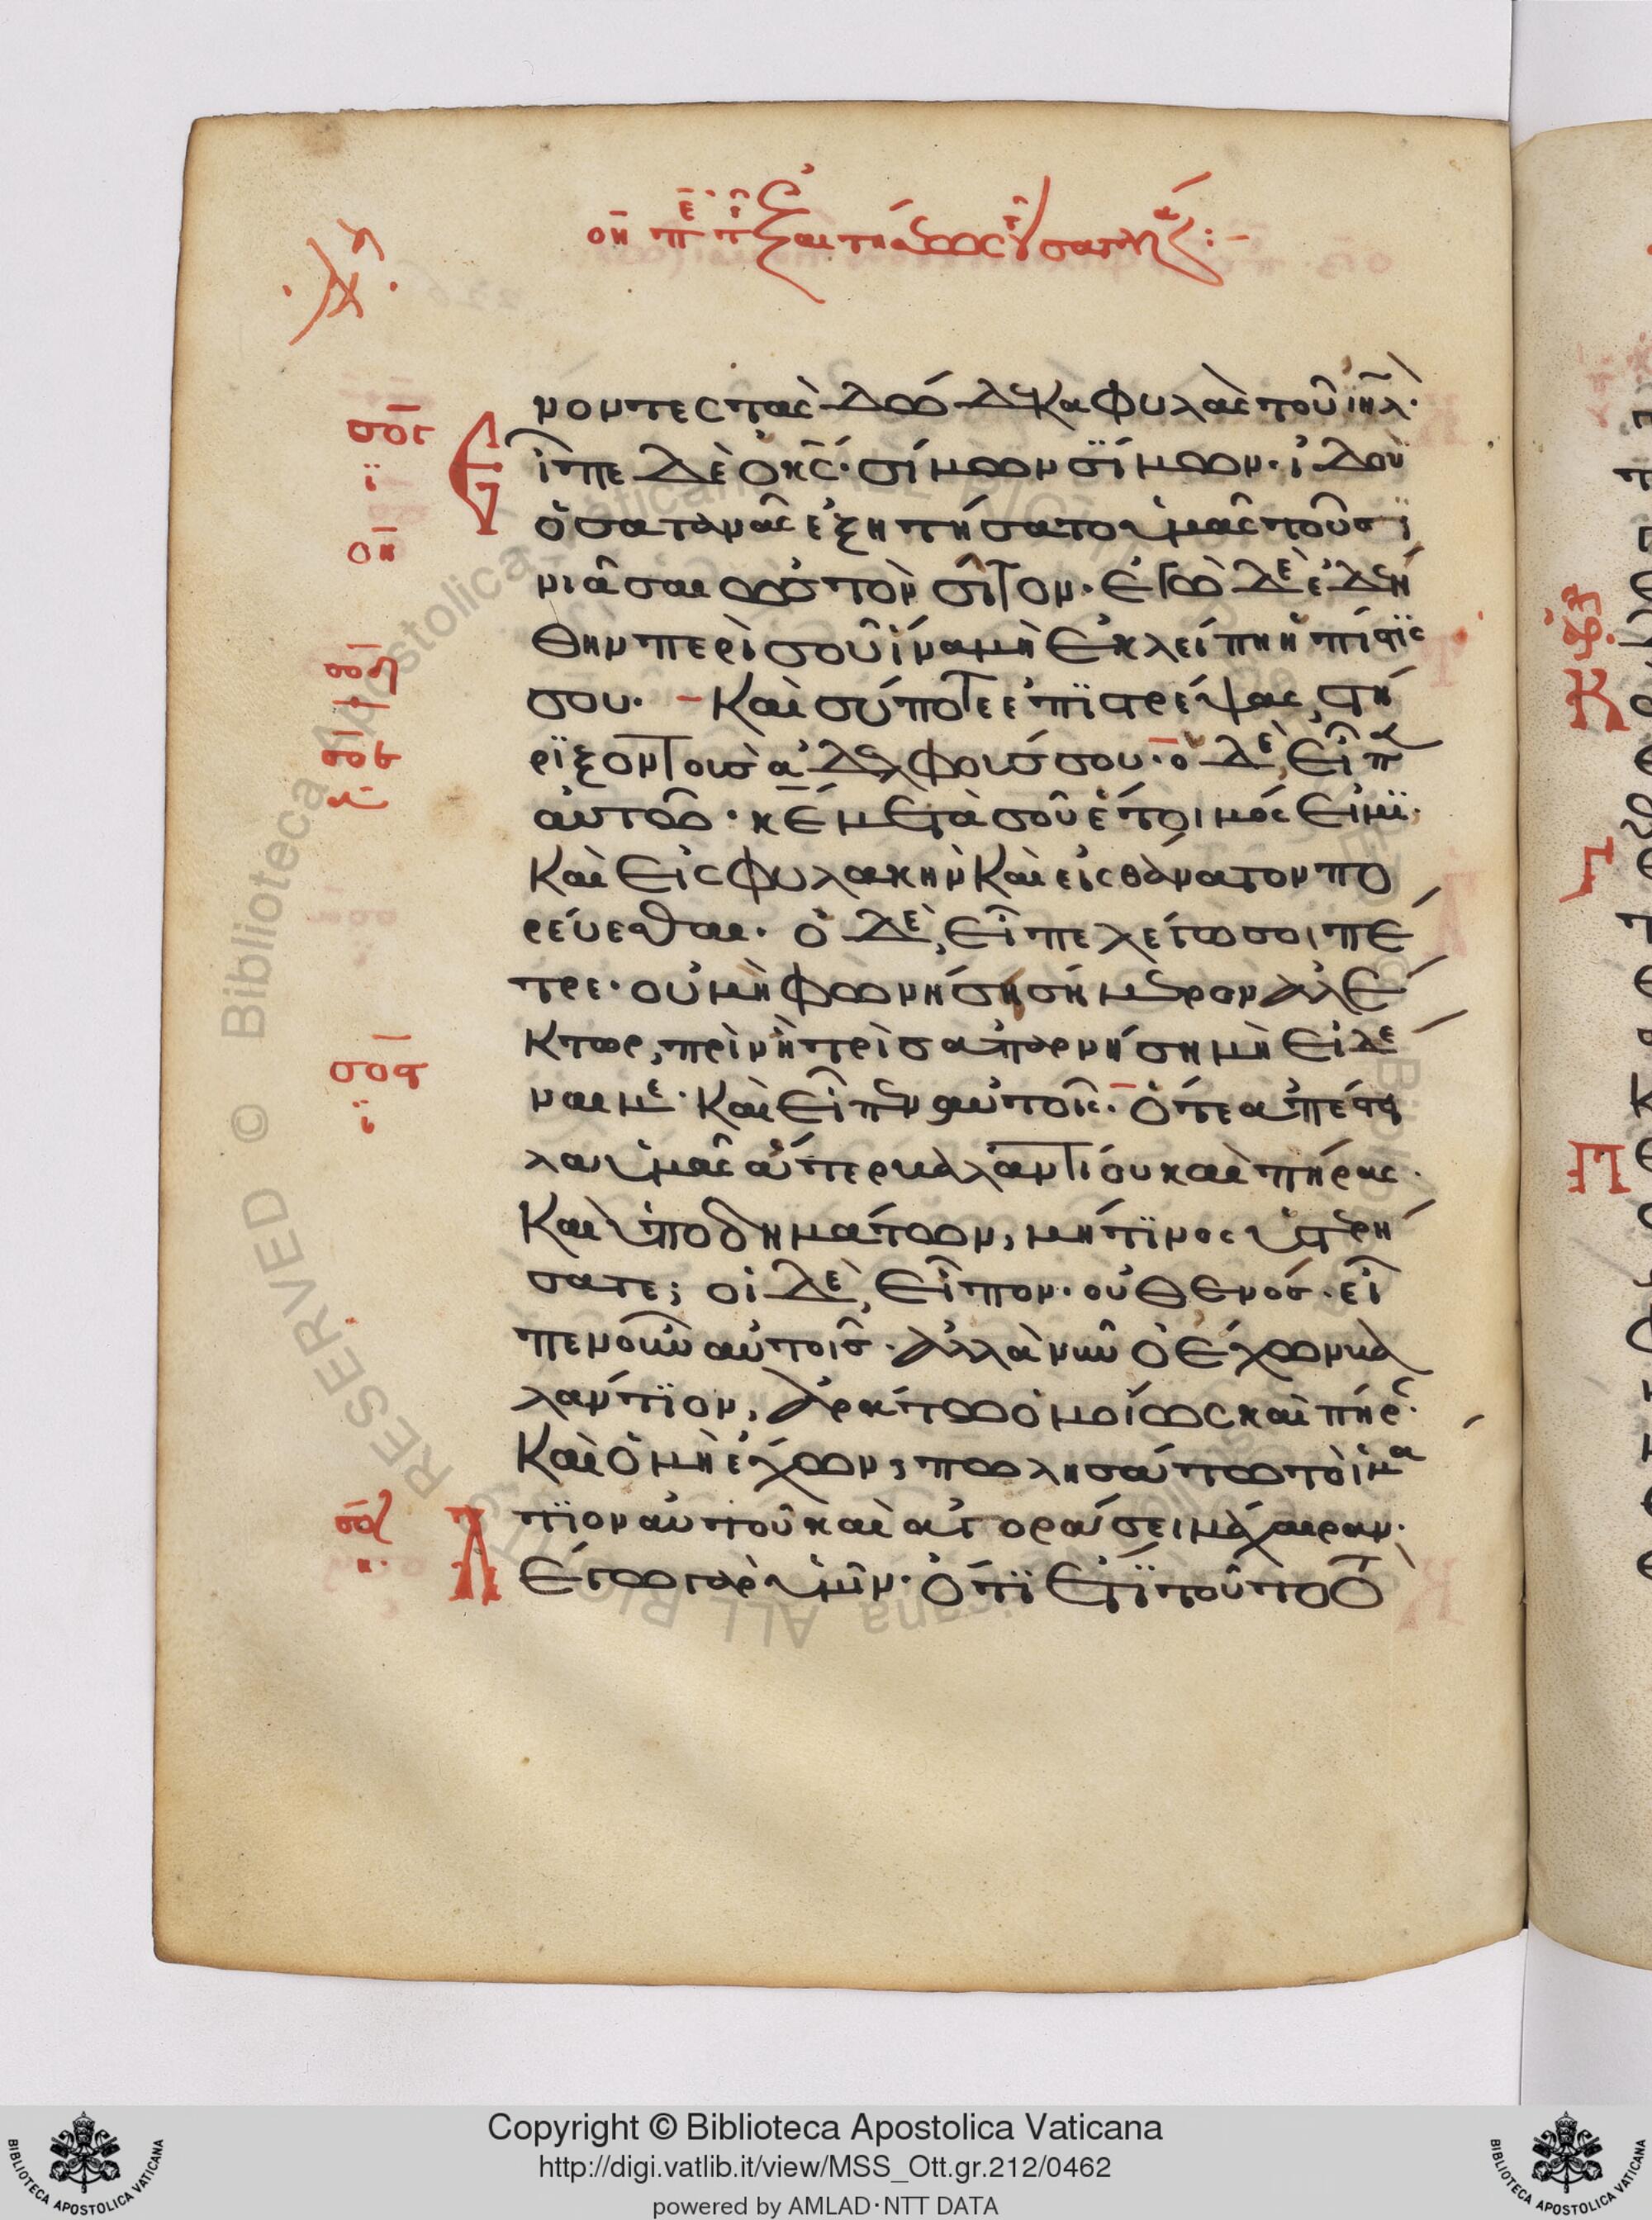 νοντες τὰς δώδεκα φυλὰς τοῦ ιηλ.
σος
Εἶπε δὲ ὁ κς. σίμων σΐμων. ἰδοὺ
οη
ὁ σατανᾶς ἐξητήσατο ὑμᾶς τοῦ σϊ
νιᾶσαι ὡς τὸν σῖτον. ἐγὼ δὲ ἐδεή
θην περὶ σοῦ ἵνα μὴ ἐκλείπη ἡ πίστϊς
σου. – Καὶ σύ ποτε ἐπϊστρέψας, στή
ρϊξον τοὺσ ἀδελφούσ σου. ὁ δὲ, εἶπεν
αὐτῶ. κε μετὰ σοῦ ἕτοιμός εἰμϊ.
Καὶ εἰς φυλακὴν Καὶ εἰς θάνατον πο
ρεύεσθαι. ὁ δὲ, εἶπε λέγω σοι πέ
τρε. οὐ μὴ φωνήση σήμερον ἀλέ
κτωρ, πρὶν ἢ τρὶσ ἀπαρνήση μὴ εἰδέ
σοθ
ναι με. Καὶ εἶπεν αὐτοῖς. ὅτε ἀπέστει
λα ὑμᾶς ἄτερ βαλαντίου καὶ πήρας.
Καὶ ὑποδημάτων, μή τϊνος ὑστερή
σατε; οἱ δὲ, εἶπον. οὐθενόσ. εἶ
πεν οὖν αὐτοῖσ. ἀλλὰ νῦν ὁ ἔχων βα
λάντϊον, ἀράτω ὁμοίως καὶ πήρ.
Καὶ ὁ μὴ ἔχων, πωλησάτω τὸ ἱμά
τϊον αὐτοῦ καὶ ἀγοράσει μάχαιραν.
Λέγω γὰρ ὑμῖν. ὅτϊ ἔτϊ τοῦτο
Copyright © Biblioteca Apostolica Vaticana
http://digi.vatlib.it/view/MSS_Ott.gr.212/0462
powered by AMLAD·NTT DATA